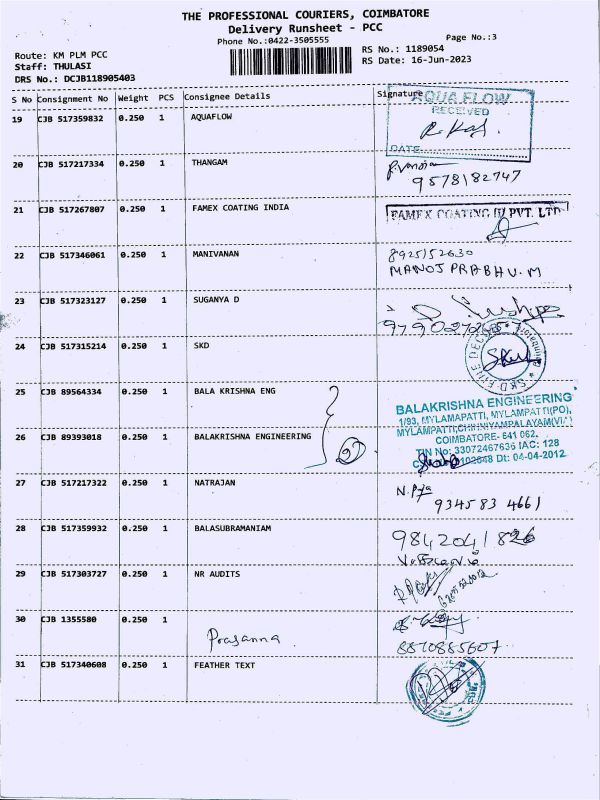 THE PROFESSIONAL COURIERS, COIMBATORE
Delivery Runsheet - PCC
Phone No.:0422-3505555
Page No.:3
Route: KM PLM PCC
RS No.: 1189054
Staff: THULASI
RS Date: 16-Jun-2023
DRS No.: DCJB118905403
S No Consignment No Weight PCS Consignee Details Signature
AQUA FLOW
RECEIVED
DATE
19 CJB 517359832 0.250 1 AQUAFLOW
20 CJB 517217334 0.250 1 THANGAM
9578182747
21 CJB 517267807 0.250 1 FAMEX COATING INDIA
FAMEX COATING PVT. LTD
22 CJB 517346061 0.250 1 MANIVANAN
8925152630
MANOJ PRABHU.M
23 CJB 517323127 0.250 1 SUGANYA D
24 CJB 517315214 0.250 1 SKD
25 CJB 89564334 0.250 1 BALA KRISHNA ENG
BALAKRISHNA ENGINEERING
1/93, MYLAMAPATTI, MYLAMPATTI(PO),
MYLAMPATTI,CHINNIYAMPALAYAM(VIA)
COIMBATORE- 641 062.
TIN No: 33072467636 IAC: 128
Dt: 04-04-2012
26 CJB 89393018 0.250 1 BALAKRISHNA ENGINEERING
27 CJB 517217322 0.250 1 NATRAJAN
934583 4661
28 CJB 517359932 0.250 1 BALASUBRAMANIAM
9842041826
29 CJB 517303727 0.250 1 NR AUDITS
30 CJB 1355580 0.250 1
Prasanna
8870885607
31 CJB 517340608 0.250 1 FEATHER TEXT